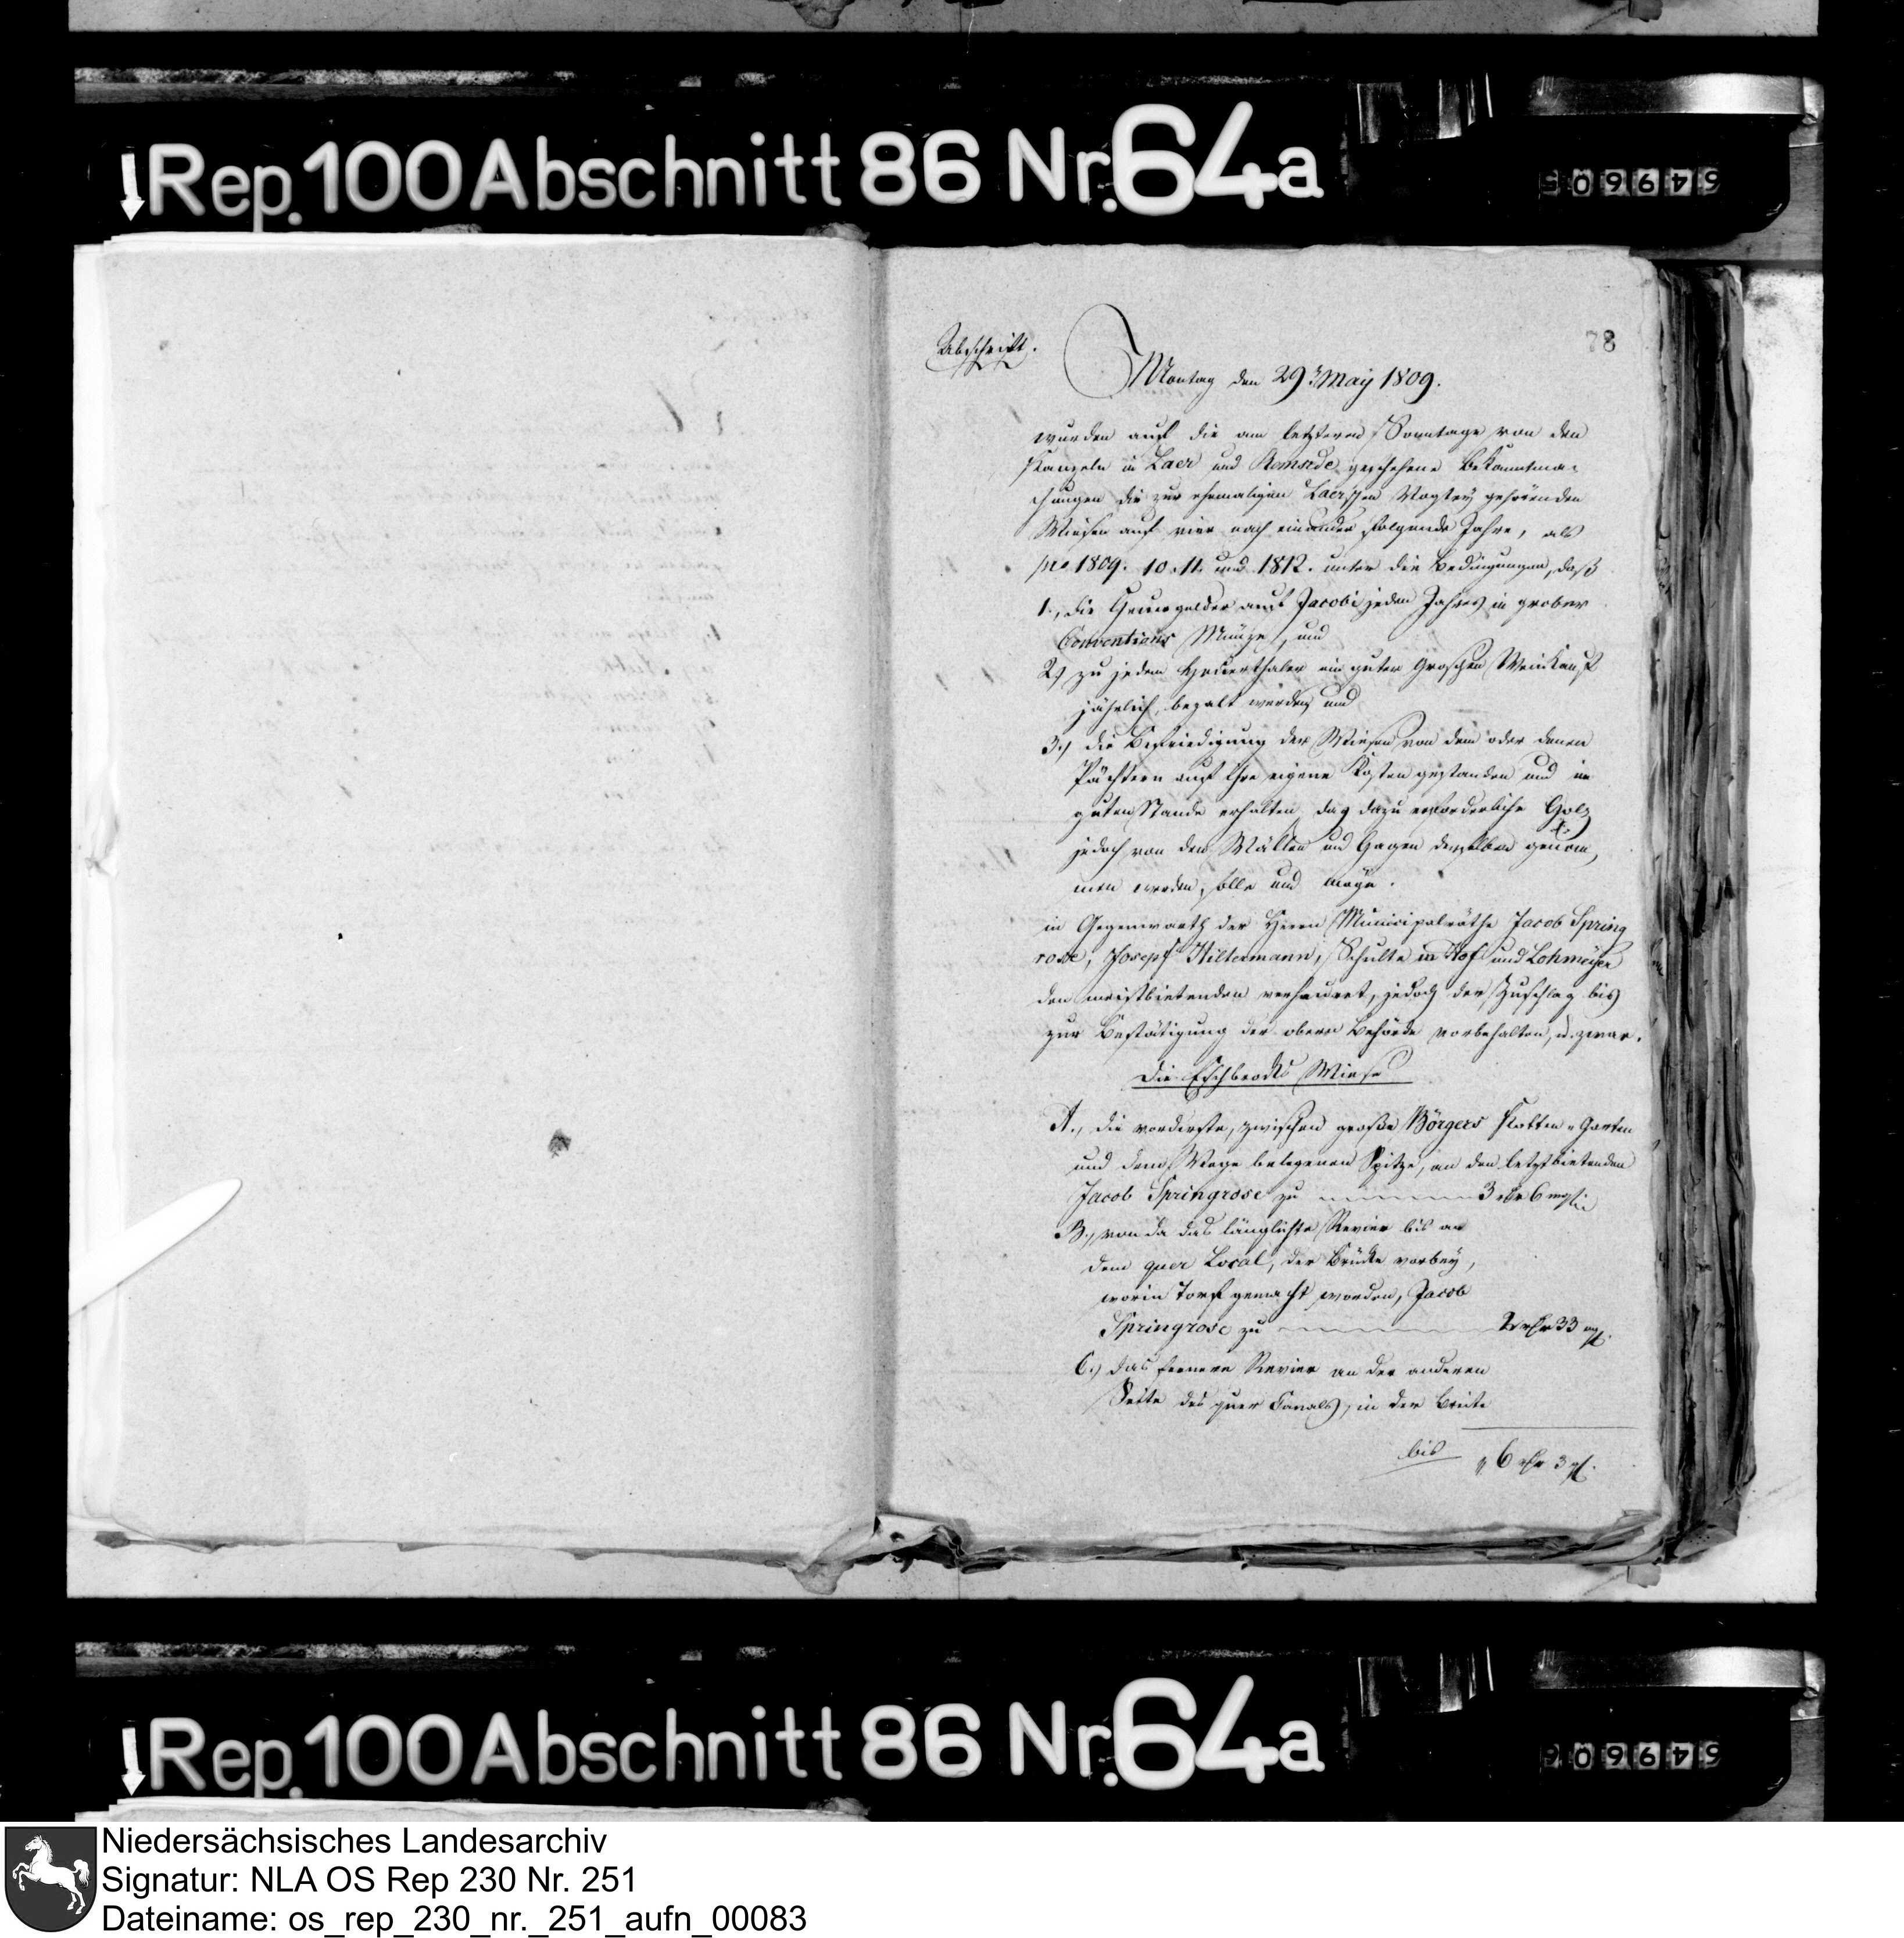 Rep. 100 Abschnitt 86 Nr. 64a
649605
78
Abschrift.
Montag den 29t May 1809.
wurden auf die am letzteren Sonntage von den
Kanzeln in Laer und Remsede geschehene Bekanntma-
chungen die zur ehemaligen Laerschen Vogtey gehörenden
Wiesen auf vier nach einander folgende Jahre, als
pro 1809. 10. 11. und 1812. unter die Bedingungen, daß
1., die Heuergelder auf Jacobi jeden Jahres in grober
Conventions Münze, und
2) zu jedem Heuerthaler ein guter Groschen Weinkauf
jährlich bezalt werden, und
3.) die Befriedigung der Wiesen von dem oder denen
Pächtern auf ihre eigene Kosten gestanden und im
guten Stande erhalten, das dazu erforderliche Holz
jedoch von den Wällen und Hagen derselben genom,
men werden solle und möge.
in Gegenwarth der Herrn Municipalräthe Jacob Spring
rose, Joseph Hiltermann, Schulte im Hof und Lohmeyer
den meistbietenden verheuert, jedoch der Zuschlag bis
zur Bestätigung der obern Behörde vorbehalten, u. zwar.
Die Eschbrocks Wiese
A., die vorderste, zwischen große Börgers Garten
und dem Wege belegenen Spitze, an den letztbietenden
Jacob Springrose zu 3 rthr 6 mgr
B., von da das länglichte Revier bis an
dem quer Local, der Brücke vorbey,
worin Torf gemacht worden, Jacob
Springrose zu 2 rthr 33 mgr.
C.) das fernere Revier an der anderen
Seite des quer Canals, in der Breite
bis 6 rthr 3 gr.
Rep. 100 Abschnitt 86 Nr. 64a
649606
Niedersächsisches Landesarchiv
Signatur: NLA OS Rep 230 Nr. 251
Dateiname: os_rep_230_nr._251_aufn_00083